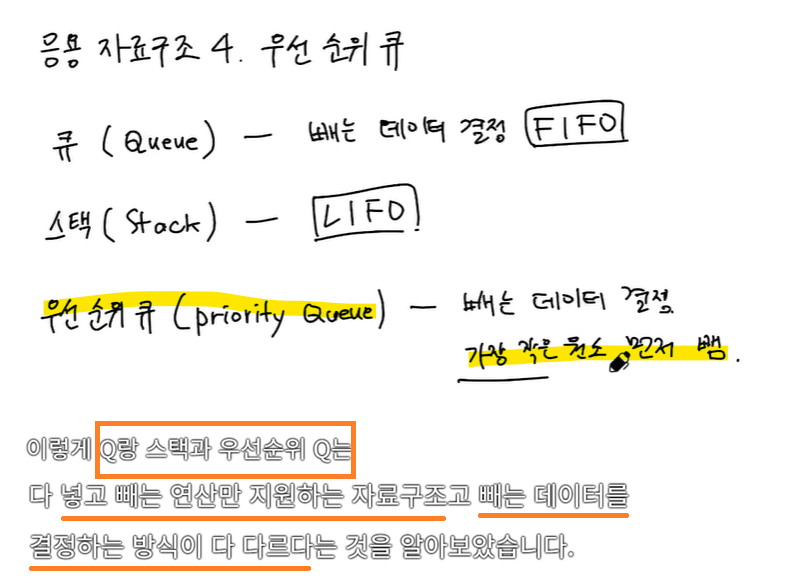 응용 자료구조 4. 우선 순위 큐
큐 (Queue) — 빼는 데이터 결정 FIFO
스택 (Stack) — LIFO
우선순위 큐 (priority Queue) — 빼는 데이터 결정
가장 작은 원소 먼저 뺌.
이렇게 Q랑 스택과 우선순위 Q는
다 넣고 빼는 연산만 지원하는 자료구조고 빼는 데이터를
결정하는 방식이 다 다르다는 것을 알아보았습니다.